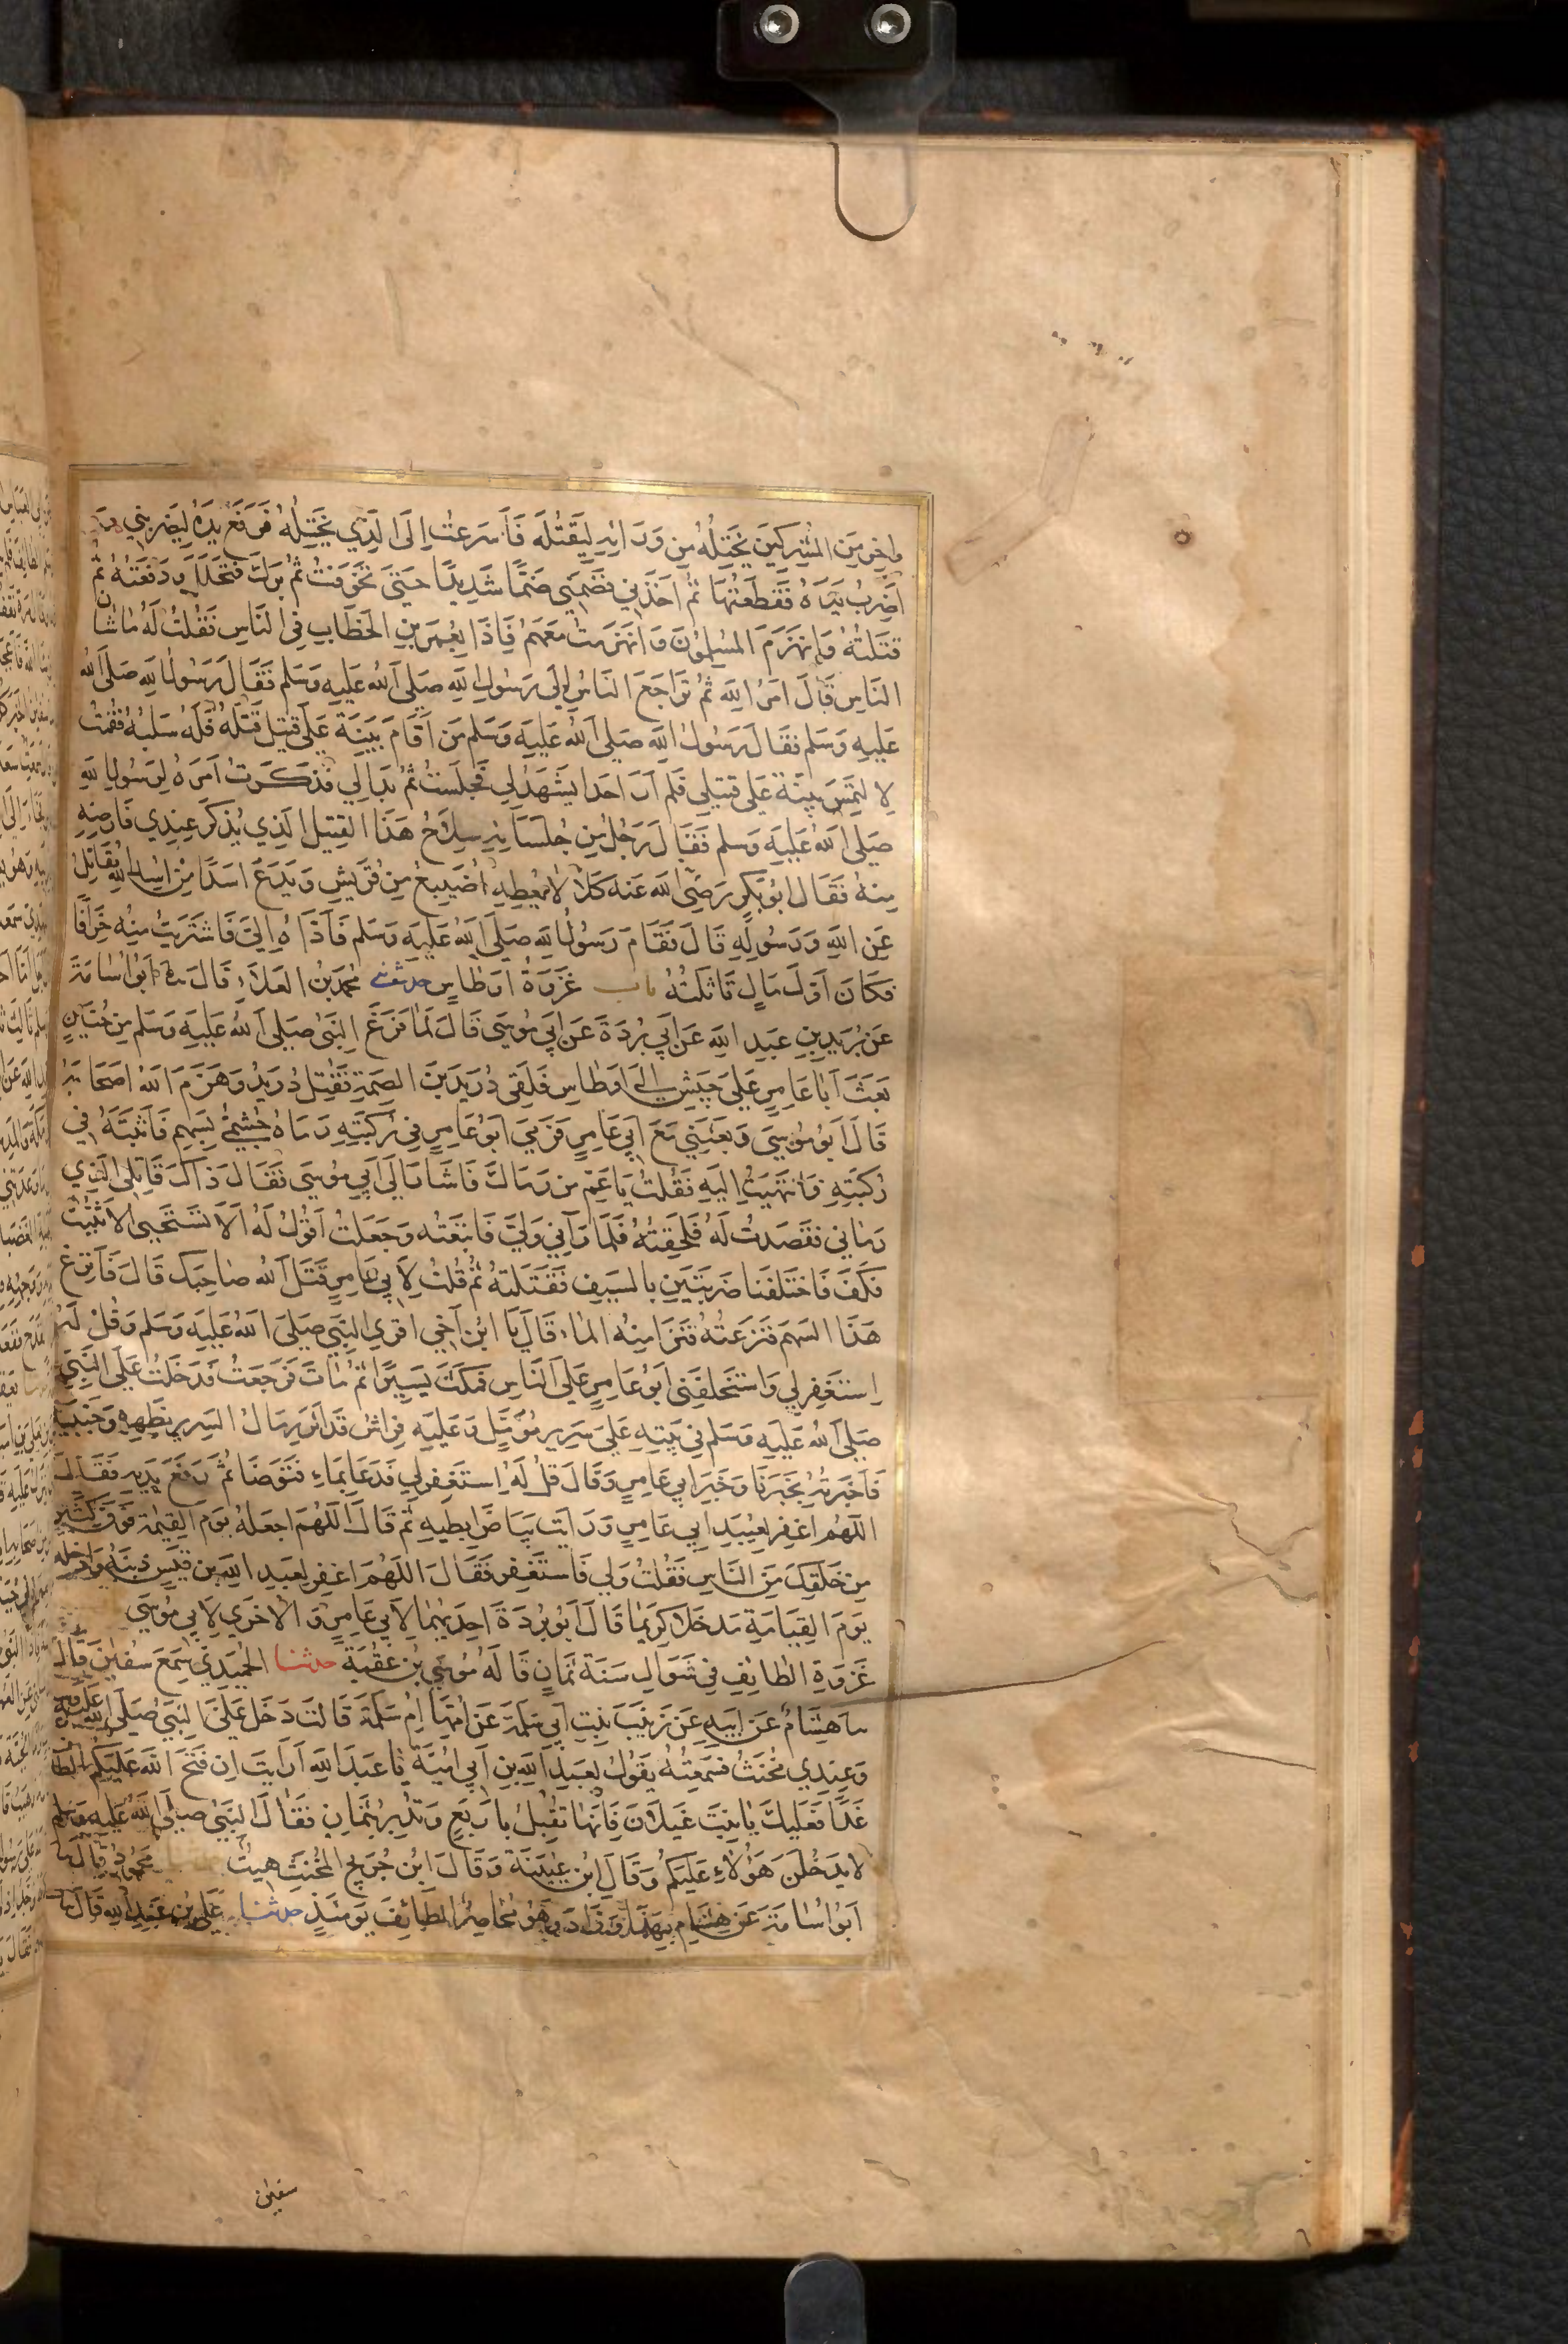 واخر من المشركين يختله من ورائه ليقتله فأسرعت إلى الذي يختله فرفع يده ليضربني و
اضرب يده فقطعتها ثم اخذني فضمني ضما شديدا حتى تخوفت ثم برك فتحلل ودفعته ثم
قتلته وانهزم المسلمون وانهزمت معهم فاذا بعمر بن الخطاب في الناس فقلت له ماشان
الناس قال امر الله ثم تراجع الناس إلى رسول الله صلى الله عليه وسلم فقال رسول الله صلى الله
عليه وسلم فقال رسول الله صلى الله عليه وسلم من أقام بينة على قتيل قتله فله سلبه فقمت
لا لتمس بينة على قتيلي فلم ار احدا يشهد لي فجلست ثم بدا لي فذكرت امره لرسول الله
صلى الله عليه وسلم فقال رجل من جلسائه سلاح هذا القتيل الذي يذكر عندي فارضه
منه فقال ابو بكر رضي الله عنه كلا لا يعطيه اضيبع من قريش ويدع اسدا من اسد الله يقاتل
عن الله ورسوله قال فقام رسول الله صلى الله عليه وسلم فأداه الي فاشتريت منه خرافا
فكان اول مال تاثلته باب غزوة اوطاس حدثني محمد بن العلاء قال ثنا ابو اسامة
عن بريد بن عبد الله عن ابي بردة عن ابي موسى قال لما فرغ النبي صلى الله عليه وسلم من حنين
بعث ابا عامر على جيش الى اوطاس فلقي دريد بن الصمة فقتل دريد وهزم الله اصحابه
قال ابو موسى وبعثني مع ابي عامر فرمي ابو عامر في ركبته رماه جشمي بسهم فأثبته في
ركبته فانتهيت اليه فقلت يا عم من رماك فاشار الى ابي موسى فقال ذاك قاتلي الذي
رماني فقصدت له فلحقته فلما رآني ولى فاتبعته وجعلت اقول له ألا تستحيي الا تثبت
فكف فاختلفنا ضربتين بالسيف فقتلته ثم قلت لأبي عامر قتل الله صاحبك قال فانزع
هذا السهم فنزعته فنزا منه الماء قال يا ابن اخي اقرئ النبي صلى الله عليه وسلم وقل له
استغفر لي واستخلفني ابو عامر على الناس فمكث يسيرا ثم مات فرجعت فدخلت على النبي
صلى الله عليه وسلم في بيته على سرير مرمل وعليه فراش قد اثر رمال السرير بظهره وجنبيه
فأخبرته بخبرنا وخبر ابي عامر وقال قل له استغفر لي فدعا بماء فتوضا ثم رفع يديه فقال
اللهم اغفر لعبيد ابي عامر ورايت بياض ابطيه ثم قال اللهم اجعله يوم القيمة فوق كثير
من خلقك من الناس فقلت ولي فاستغفر فقال اللهم اغفر لعبد الله بن قيس ذنبه وادخله
يوم القيامة مدخلا كريما قال ابو بردة احديهما لابي عامر والاخرى لابي موسى
غزوة الطائف في شوال سنة ثمان قاله موسى بن عقبة حدثنا الحميدي سمع سفين قال
ثنا هشام عن ابيه عن زينب بنت ابي سلمة عن امها ام سلمة قالت دخل علي النبي صلى الله عليه وسلم
وعندي مخنث فسمعته يقول لعبد الله بن ابي امية يا عبد الله أرايت إن فتح الله عليكم الطا
غدا فعليك يا بنت غيلان فانها تقبل باربع وتدبر بثمان فقال النبي صلى الله عليه وسلم
لا يدخلن هؤلاء عليكم وقال ابن عيينة وقال ابن جريج المخنث هيت محمود قال ثنا
ابو اسامة عن هشام بهذا وزاد وهو محاصر الطائف يومئذ حدثنا علي بن عبد الله قال ثنا
سفين